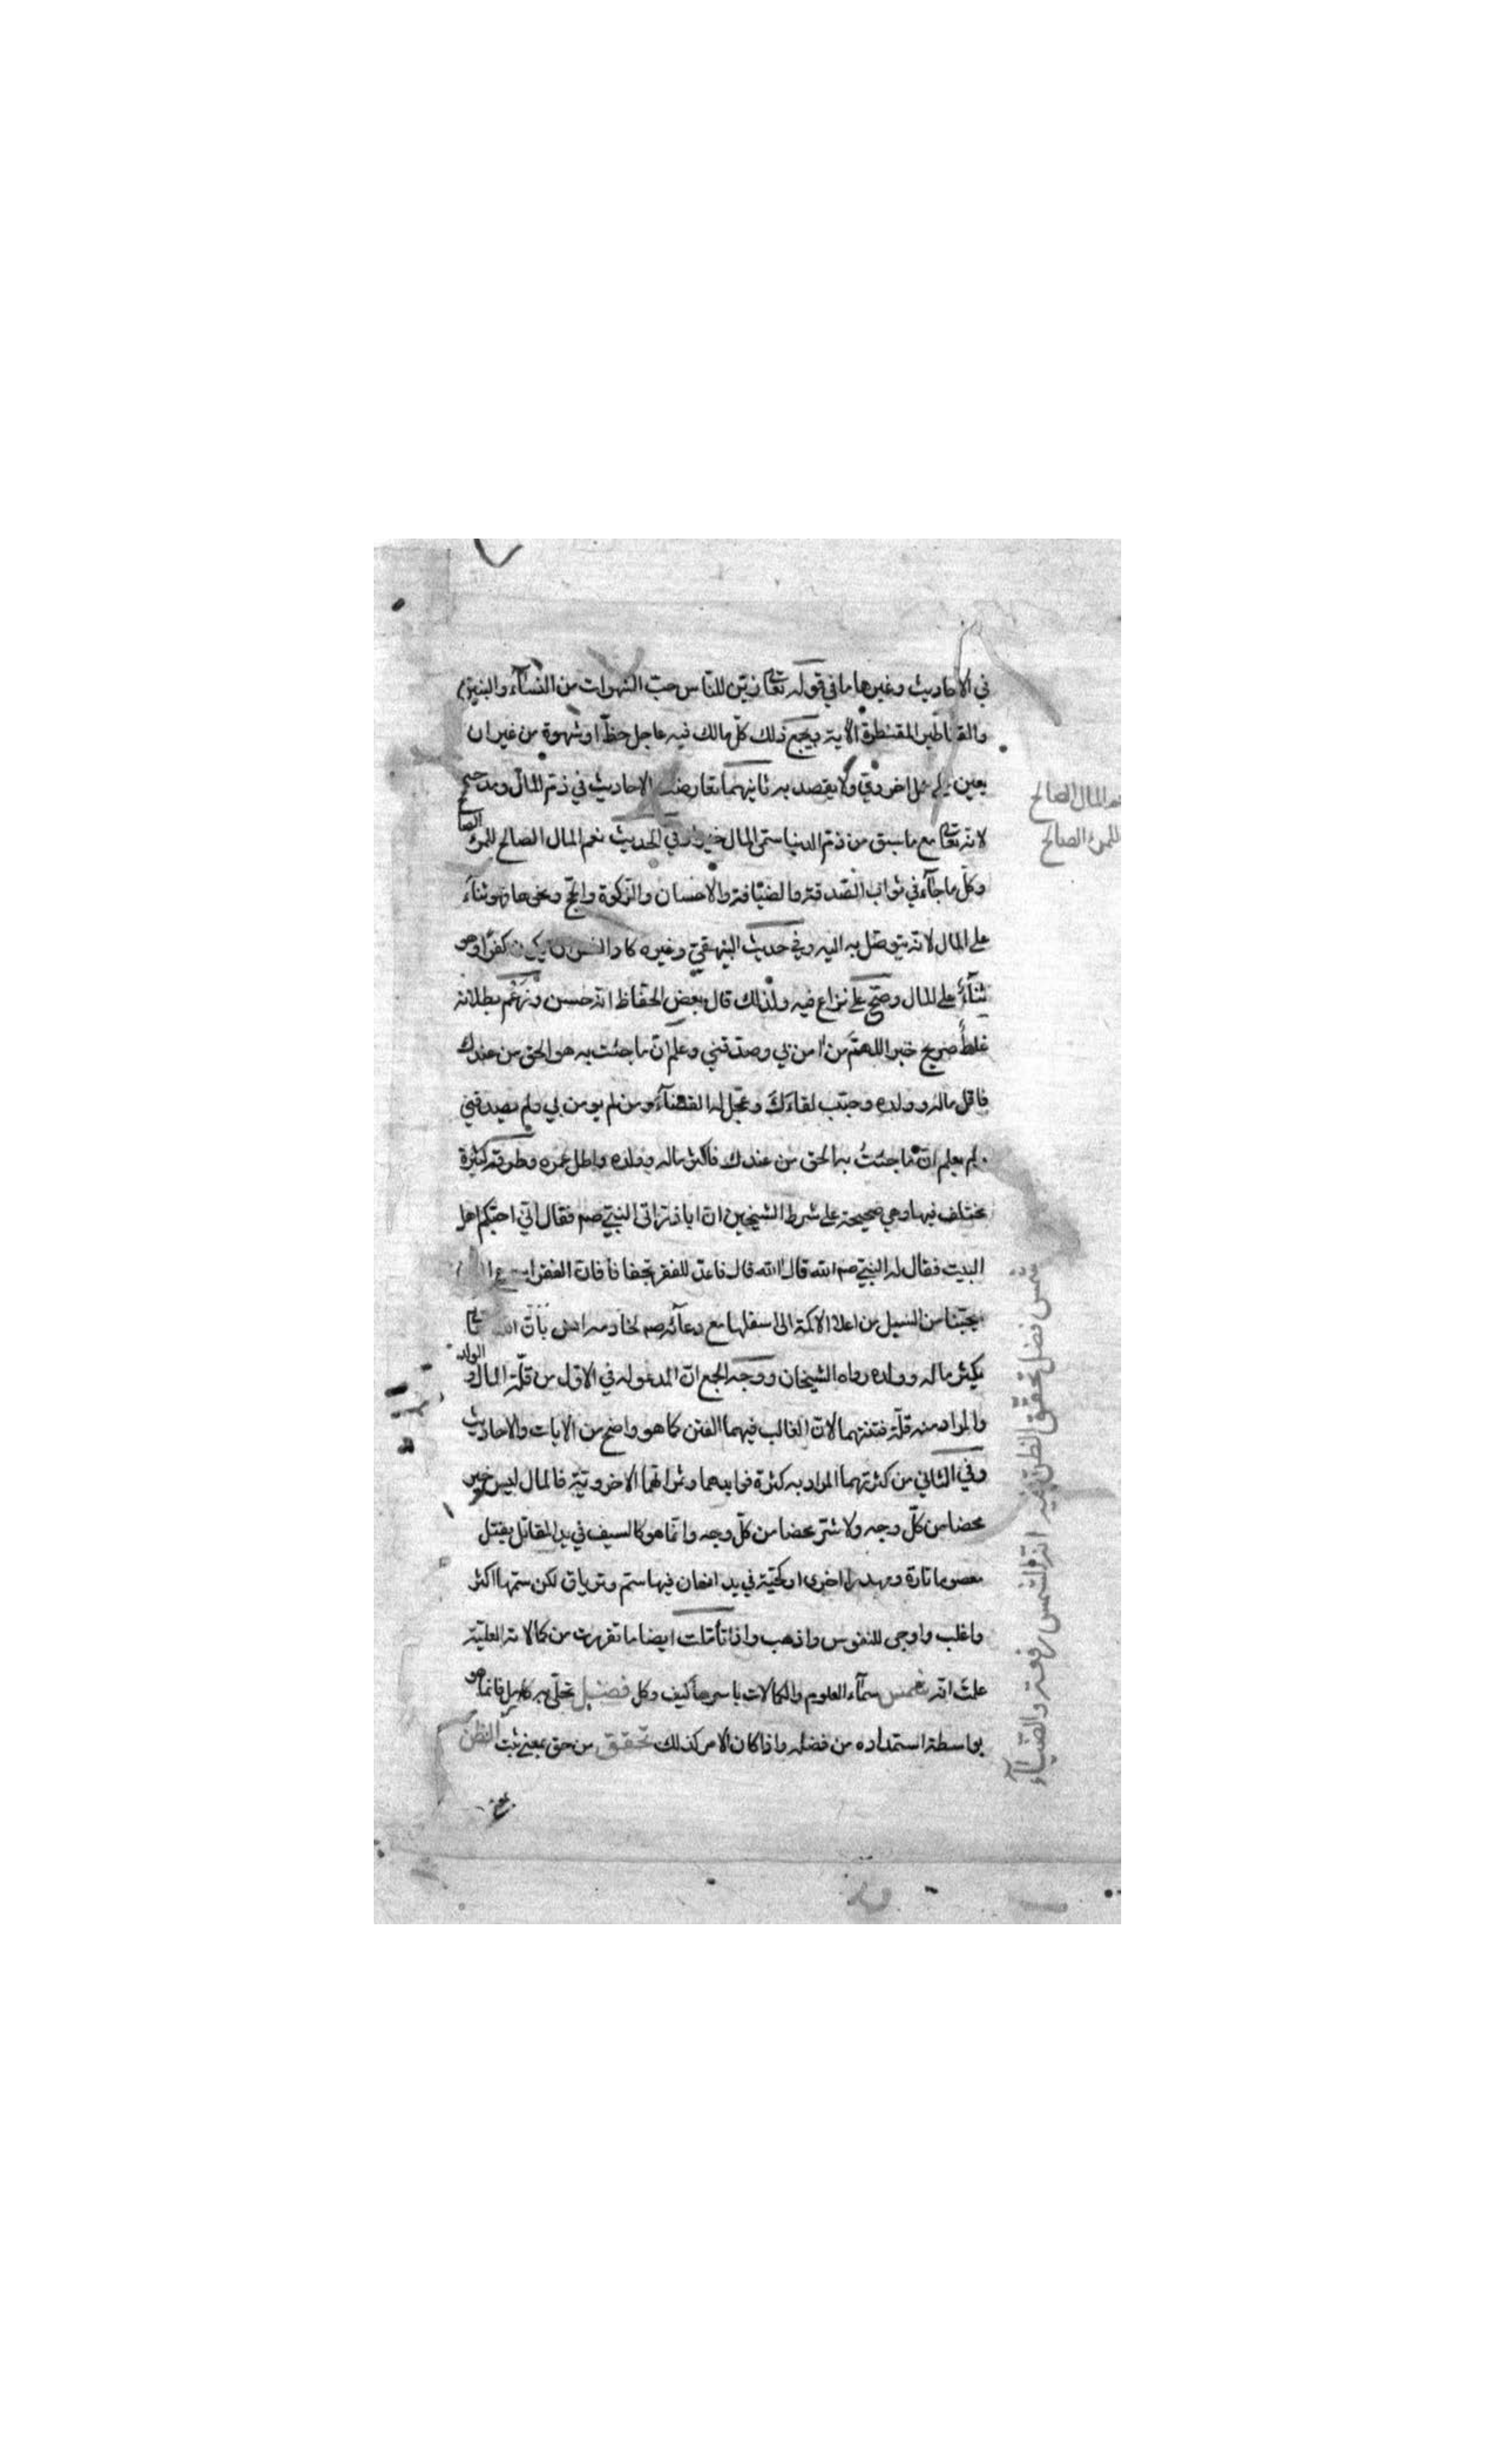 في الاحاديث وغيرها ما في قوله تعا زين للناس حب الشهوات من النسآء والبنين
والقناطير المقنطرة الآية ويجمع ذلك كل مالك فيه عاجل حظ او شهوة من غير ان
يعين اخروي ولا يقصد به ثانيهما تعارضت الاحاديث في ذم المال ومدحه
لانه تعا مع ما سبق من ذم الدنيا سمى المال خيرا وفي الحديث نعم المال الصالح للمرء الصالح
وكل ما جآء في ثواب الصدقة والضيافة والاحسان والزكوة والحج ونحوها فهو ثناء
على المال لانه يتوصل به اليه وفي حديث البيهقي وغيره كاد الفقر ان يكون كفرا وهو
ثنآء على المال وصح على نزاع فيه ولذلك قال بعض الحفاظ انه حسن وزعم بطلانه
غلط صريح خبر اللهم من امن بي وصدقني وعلم ان ما جئت به هو الحق من عندك
فاقل ماله وولده وحبب لقاءك وعجل له القضآء ومن لم يومن بي ولم يصدقني
ولم يعلم ان ما جئت به الحق من عندك فاكثر ماله وولده واطل عمره وطرقه كثيرة
مختلف فيها وهي صحيحة على شرط الشيخين ان ابا ذر اتى النبي صم فقال اني احبكم اهل
البيت فقال له النبي صم الله قال الله قال فاعد للفقر تجفافا فان الفقر اسرع الى
يحبنا من السيل من اعلا الاكمة الى اسفلها مع دعآئه صم لخادمه انس بان الله تعا
يكثر ماله وولده رواه الشيخان ووجه الجمع ان المدعو له في الاول من قلة المال والولد
والمراد منه قلة فتنتهما لان الغالب فيهما الفتن كما هو واضح من الايات والاحاديث
وفي الثاني من كثرتهما المراد به كثرة فوايدهما وثمراتهما الاخروية فالمال ليس خير
محضا من كل وجه ولا شر محضا من كل وجه وانما هو كالسيف في يد المقاتل يقتل
معصوما تارة ومهدرا اخرى او كحية في يد انسان فيها سم وترياق لكن سمها اكثر
واغلب واوجى للنفوس واذهب واذا تأملت ايضا ما تقررت من كمالاته العلية
علمت انه شمس سمآء العلوم والكمالات باسرها كيف وكل فضل تحلى به كامل فانما هو
بواسطة استمداده من فضله واذا كان الامر كذلك تحقق من حق بمعنى ثبت الظن
نعم المال الصالح
للمرء الصالح
شمس فضل تحقق الظن فيه انه الشمس رفعة والضيآء